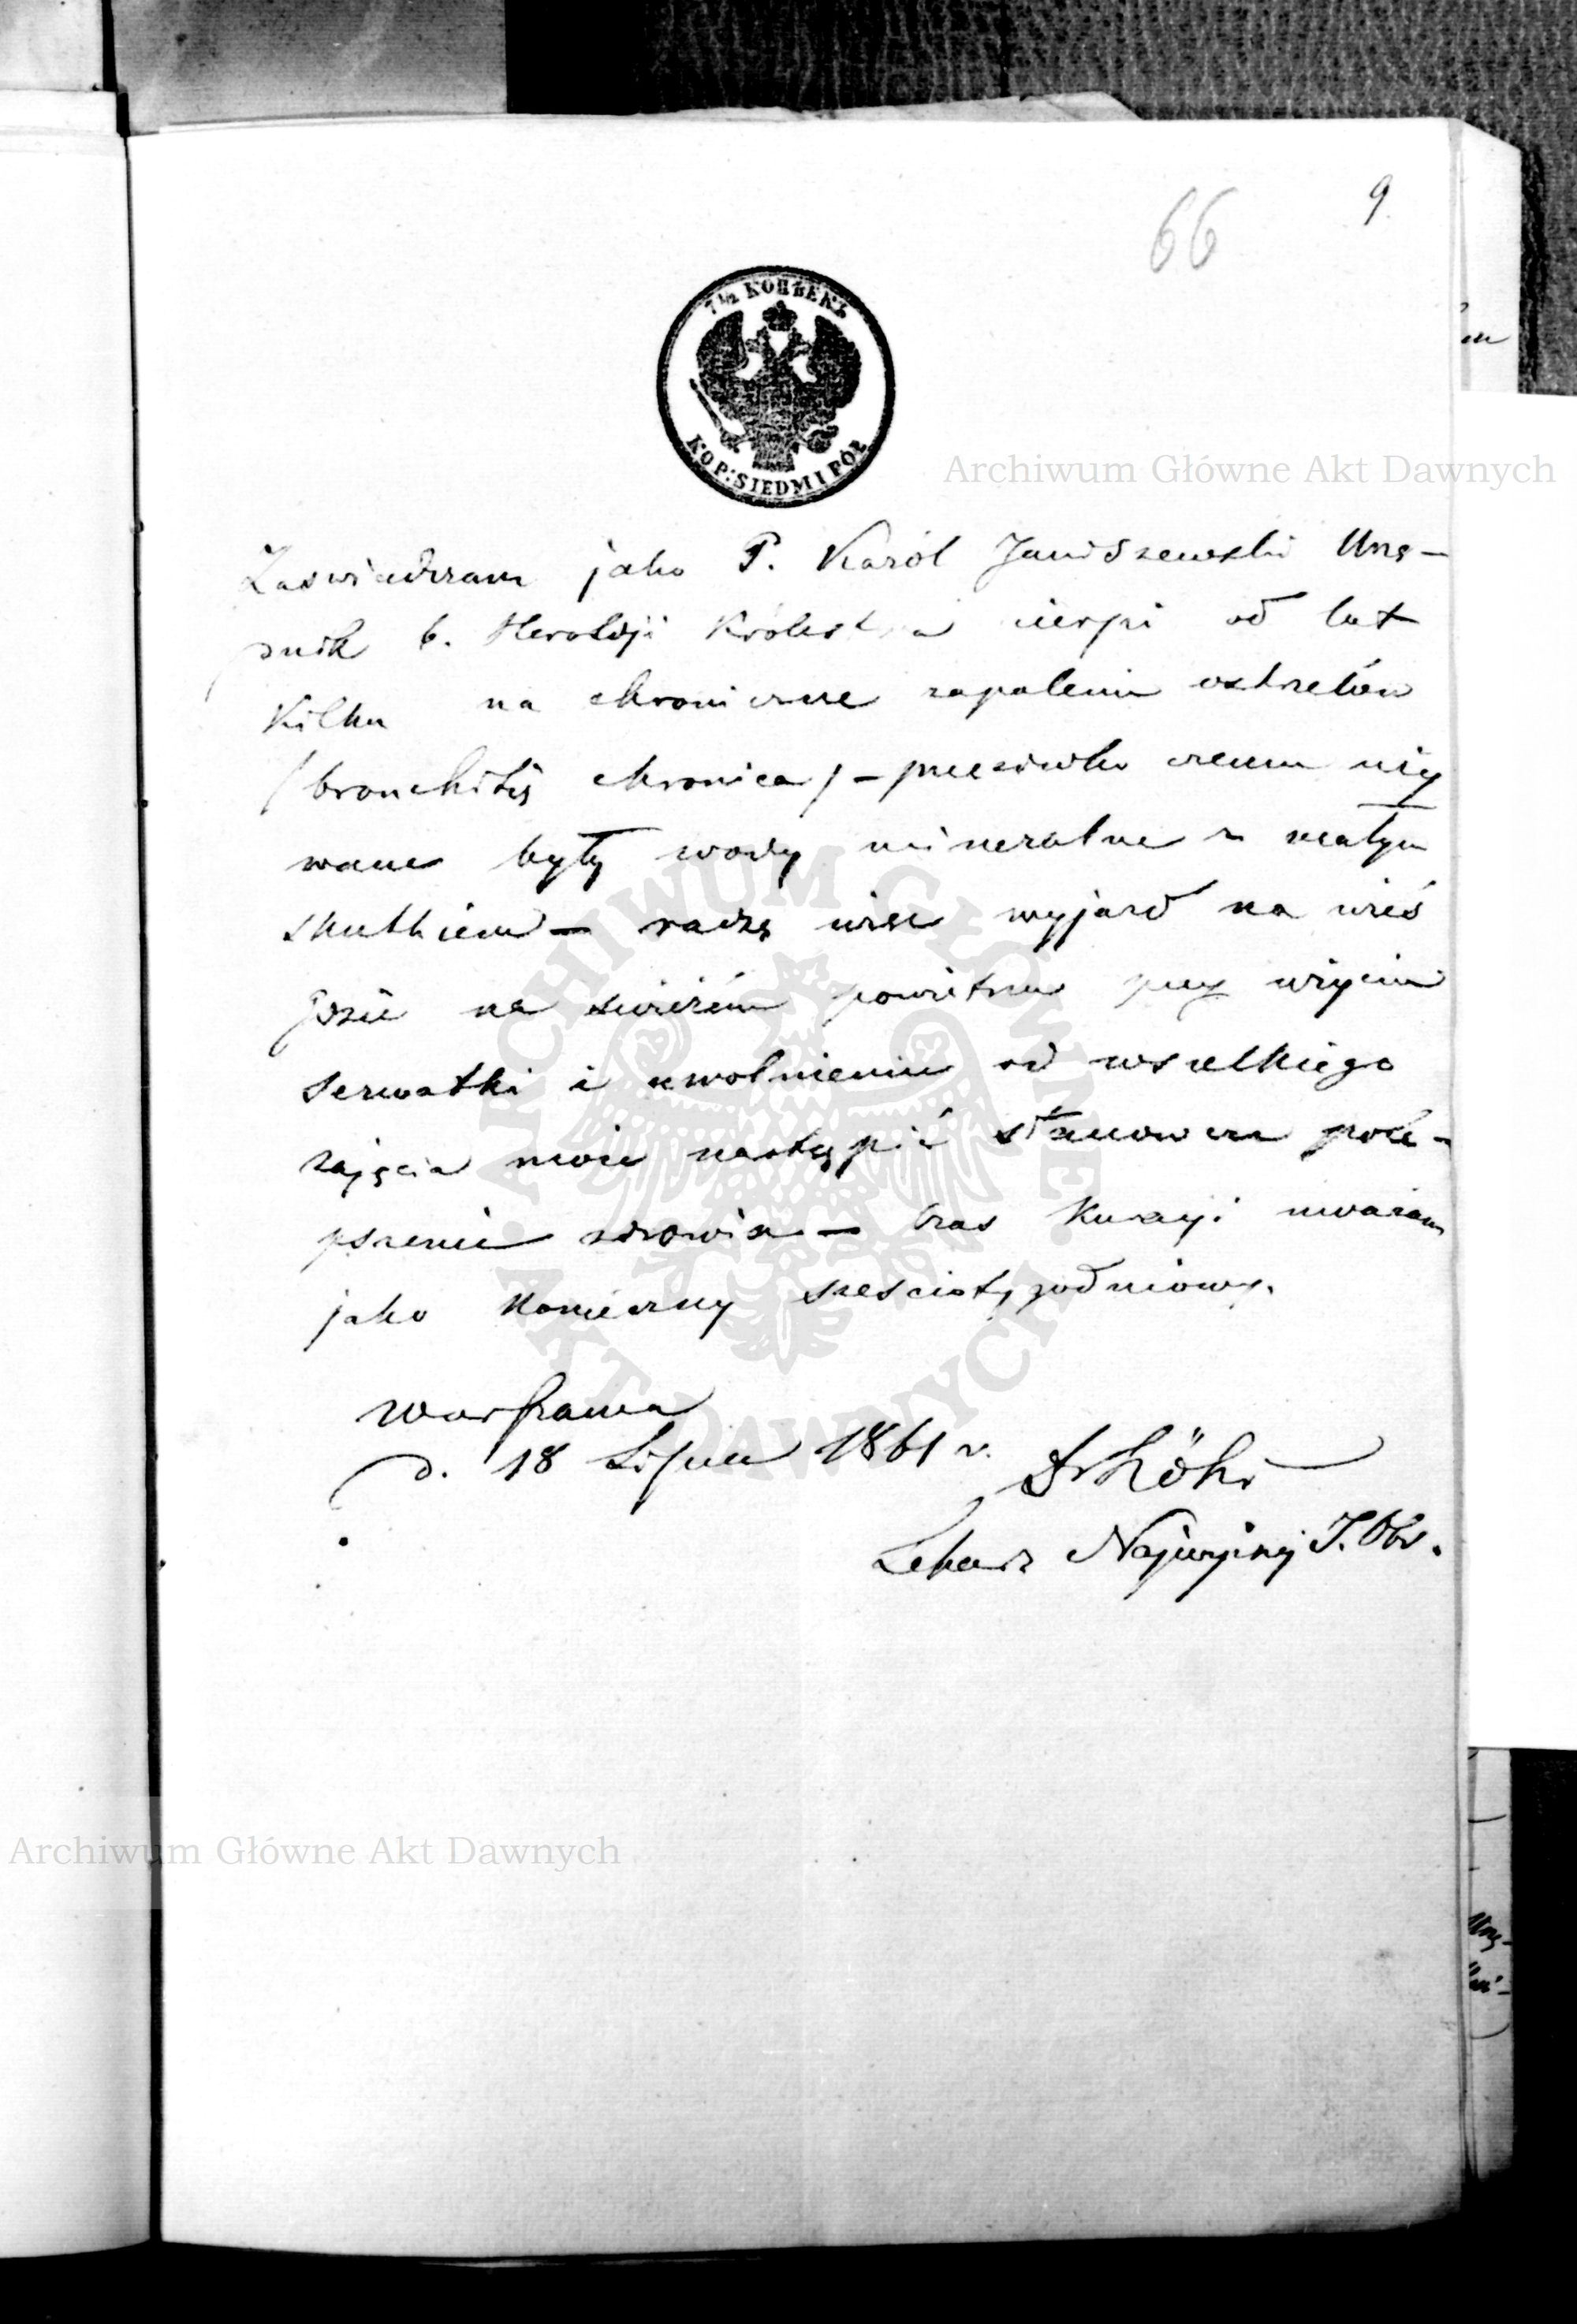 66
9
7 1/2 КОПѢЕКЪ
KOP: SIEDM I PÓŁ
Archiwum Główne Akt Dawnych
Zaświadczam jako P. Karól Janiszewski Urzę-
dnik b. Heroldji Królestwa cierpi od lat
Kilku na chroniczne zapalenie oskrzelów
/bronchitis chronica/ – przeciwko czemu uży
wane były wody mineralne z małym
skutkiem – radzę więc wyjazd na wieś
gdzie na świeżém powietrzu przy użyciu
Serwatki i uwolnieniu od wszelkiego
zajęcia może nastąpić stanowcze pole-
pszenie zdrowia – Czas Kuracyi uważam
jako Konieczny sześciotygodniowy.
Warszawa
d. 18 Lipca 1861 r.
Dr Köhr
Lekarz Najwyższej I. Obr.
ARCHIWUM GŁÓWNE AKT DAWNYCH
Archiwum Główne Akt Dawnych